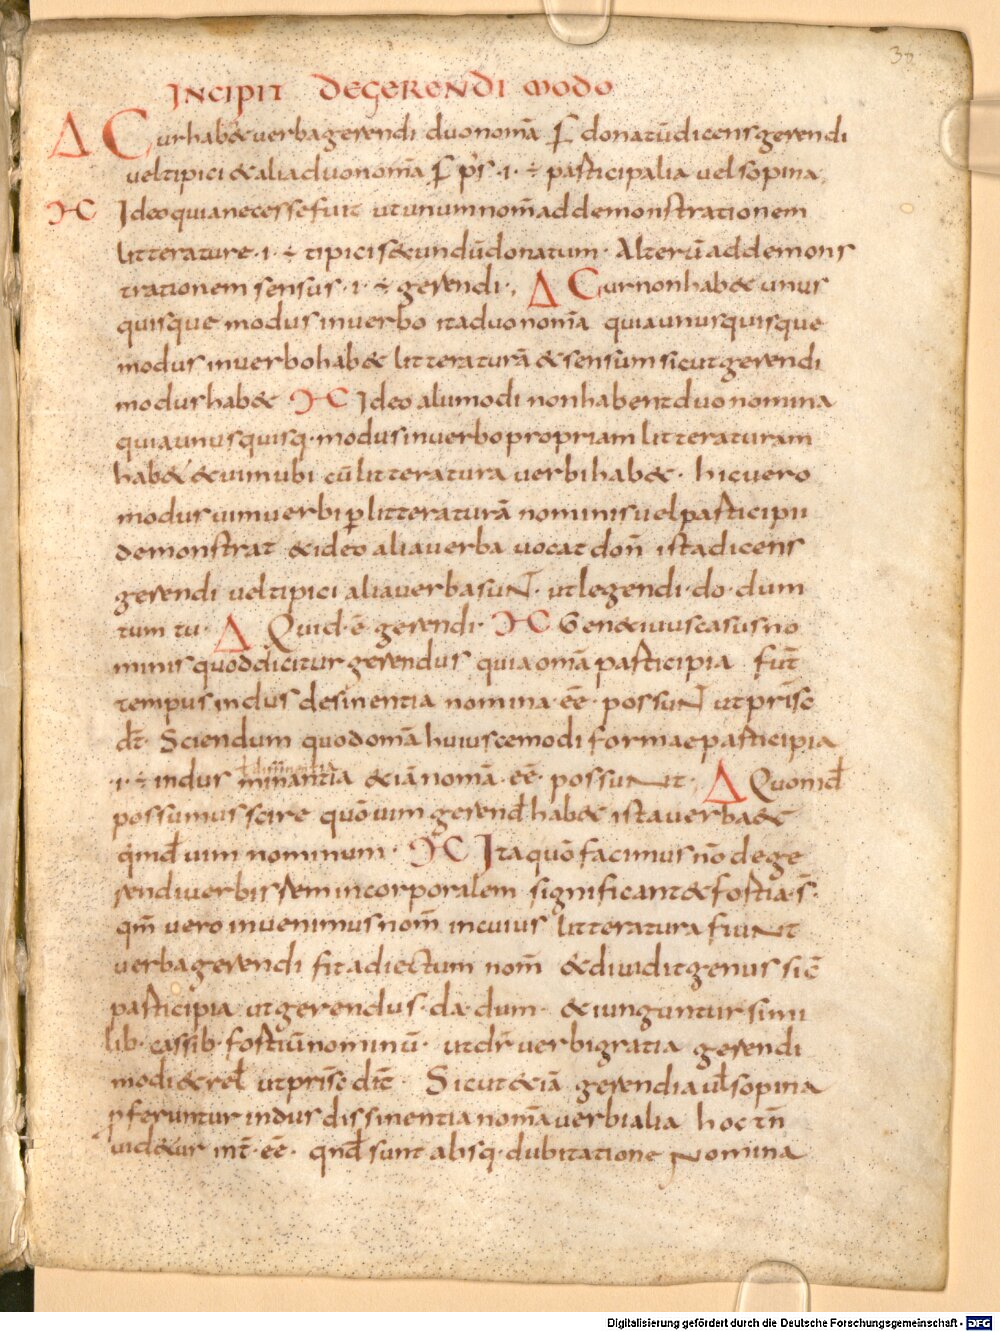 38
INCIPIT DEGERENDI MODO
Δ Cur hab& verba gerendi duo nom̄a .F. donatū dicens gerendi
vel tipici & alia duo nom̄a .F. p̄s ·i· ÷ participalia vel sopina
ꟼC Ideo quia necesse fuit ut unum nom̄ ad demonstrationem
litterature ·i· ÷ tipici s&undū donatum · Alterū ad demons
trationem sensus ·i· ÷ gerendi ·, Δ Cur non hab& unus
quisque modus in verbo ita duo nom̄a quia unusquisque
modus in verbo hab& litteraturā & sensum sicut gerendi
modus hab& ꟼC Ideo alii modi non habent duo nomina
quia unusquisq· modus in verbo propriam litteraturam
hab& & vim ubi cū litteratura verbi hab& · hic vero
modus vim verbi ꝑ litteraturā nominis vel participii
demonstrat & ideo alia verba vocat don̄ ista dicens
gerendi vel tipici alia verba suNT · ut legendi · do · dum
tum tu · Δ Quid · ē gerendi · ꟼC Gen&ivus casus no
minis quod dicitur gerendus quia om̄a participia fut̄
tempus in dus desinentia nomina · ēē · possuNT ut prīsc
dt̄ · Sciendum quod om̄a huiuscemodi formae participia
·i· ÷ in dus minantia & iā nom̄a · ēē · possuNt ·, Δ Quomđ
possumus scire quō vim gerenđ hab& ista verba &
qn̄đ vim nominum · ꟼC Ita quō facimus nō de ge
rendi verbis rem incorporalem significant & fortia · s̄ ·
qm̄ vero invenimus nom̄ in cuius litteratura fiuNt
verba gerendi fit adiectum nom̄ & dividit genus sic̄
participia ut gerendus · da · dum · & iunguntur simi
lib· cassib· fortiū nominū · ut dr̄ verbi gratia gerendi
modi & rel̄ ut prīsc dīc · Sicut & iā gerendia ul̄ sopina
ꝓferuntur in dus dissinentia nom̄a verbialia hoc tn̄
vid&ur int̄ · ēē · qn̄đ sunt absq· dubitatione nomina
Digitalisierung gefördert durch die Deutsche Forschungsgemeinschaft - DFG